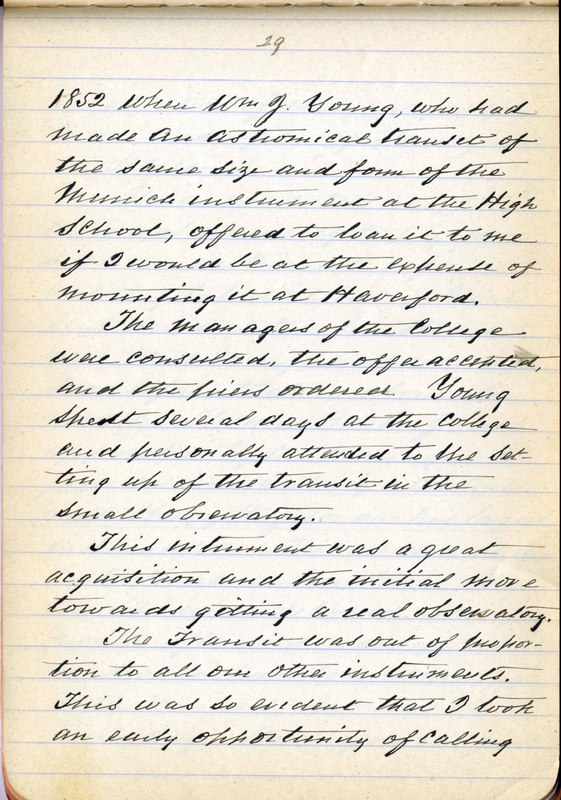 29
1852 when Wm J. Young, who had
made an astromical transet of
the same size and form of the
Munich instrument at the High
School, offered to loan it to me
if I would be at the expense of
mounting it at Haverford.
The managers of the College
were consulted, the offer accepted,
and the piers ordered Young
spent several days at the College
and personally attended to the set-
ting up of the transit in the
small obserwatory.
This intrument was a great
acquisition and the initial move
towards getting a real observatory.
The Transit was out of propor-
tion to all our other instruments.
This was so evident that I took
an early opportunity of calling